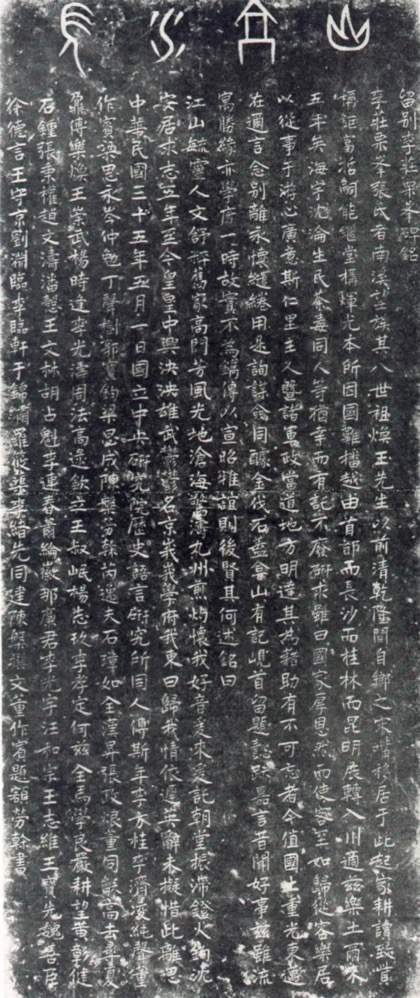 山高水長
留別李莊栗峯碑銘
李莊栗峯張氏者南溪望族其八世祖煥玉先生以前清乾隆間自鄉之宋嘴移居于此起家耕讀致貲
稱鉅哲嗣能繼堂構輝光本所因國難播越由首都而長沙而桂林而昆明展轉入川適茲樂土爾來
五年矣海宇沈淪生民荼毒同人等猶幸而有託不廢研求雖曰國家厚恩然而使客至如歸從容樂居
以從事于游心廣意斯仁里主人暨諸軍政當道地方明達其為藉助有不可忘者今值國土重光東邁
在邇言念別離永懷繾綣用是詢謀僉同醵金伐石蓋弇山有記峴首留題懿跡嘉言昔聞好事茲雖流
寓勝緣亦學府一時故實不為鐫傳以宣昭雅誼則後賢其何述銘曰
江山毓靈人文舒粹舊家高門芳風光地滄海驚濤九州煎灼懷我好音爰來爰託朝堂振滯鐙火鉤沈
安居求志五年至今皇皇中興泱泱雄武鬱鬱名京峩峩學府我東曰歸我情依遲英辭未擬惜此離思
中華民國三十五年五月一日國立中央研究院歷史語言研究所同人傅斯年李方桂李濟凌純聲董
作賓梁思永岑仲勉丁聲樹郭寶鈞梁思成陳槃勞榦芮逸夫石璋如全漢昇張政烺董同龢高去尋夏
鼐傅樂煥王崇武楊時逢李光濤周法高逯欽立王叔岷楊志玖李孝定何茲全馬學良嚴耕望黃彰健
石鍾張秉權趙文濤潘愨王文林胡占魁李連春蕭綸徽那廉君李光宇汪和宗王志維王寶先魏善臣
徐德言王守京劉淵臨李臨軒于錦繡羅筱蕖李緒先同建陳槃撰文董作賓題額勞榦書